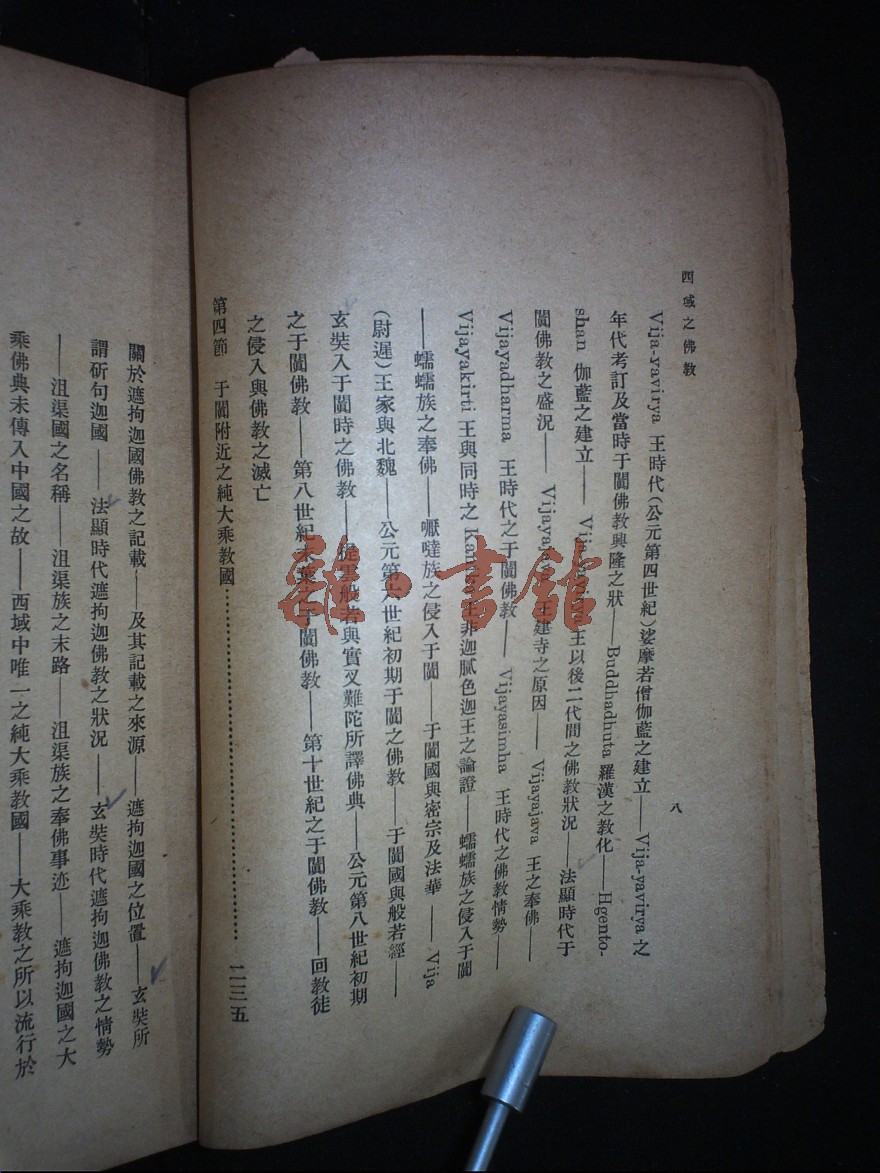 西域之佛教
八
Vija-yavirya 王時代(公元第四世紀)娑摩若僧伽藍之建立——Vija-yavirya 之
年代考訂及當時于闐佛教興隆之狀——Buddhadhuta 羅漢之教化——Hgento-
shan 伽藍之建立—— 王以後二代間之佛教狀況——法顯時代于
闐佛教之盛況—— 王建寺之原因——Vijayajava 王之奉佛——
Vijayadharma 王時代之于闐佛教——Vijayasimha 王時代之佛教情勢——
Vijayakirti 王與同時之 王非迦膩色迦王之論證——蠕蠕族之侵入于闐
——蠕蠕族之奉佛——嚈噠族之侵入于闐——于闐國與密宗及法華——Vija
(尉遲)王家與北魏——公元第六世紀初期于闐之佛教——于闐國與般若經——
玄奘入于闐時之佛教——提雲般若與實叉難陀所譯佛典——公元第八世紀初期
之于闐佛教——第八世紀末葉之于闐佛教——第十世紀之于闐佛教——回教徒
之侵入與佛教之滅亡
第四節 于闐附近之純大乘教國……二三五
關於遮拘迦國佛教之記載——及其記載之來源——遮拘迦國之位置——玄奘所
謂斫句迦國——法顯時代遮拘迦佛教之狀況——玄奘時代遮拘迦佛教之情勢
——沮渠國之名稱——沮渠族之末路——沮渠族之奉佛事迹——遮拘迦國之大
乘佛典未傳入中國之故——西域中唯一之純大乘教國——大乘教之所以流行於
雜·書館